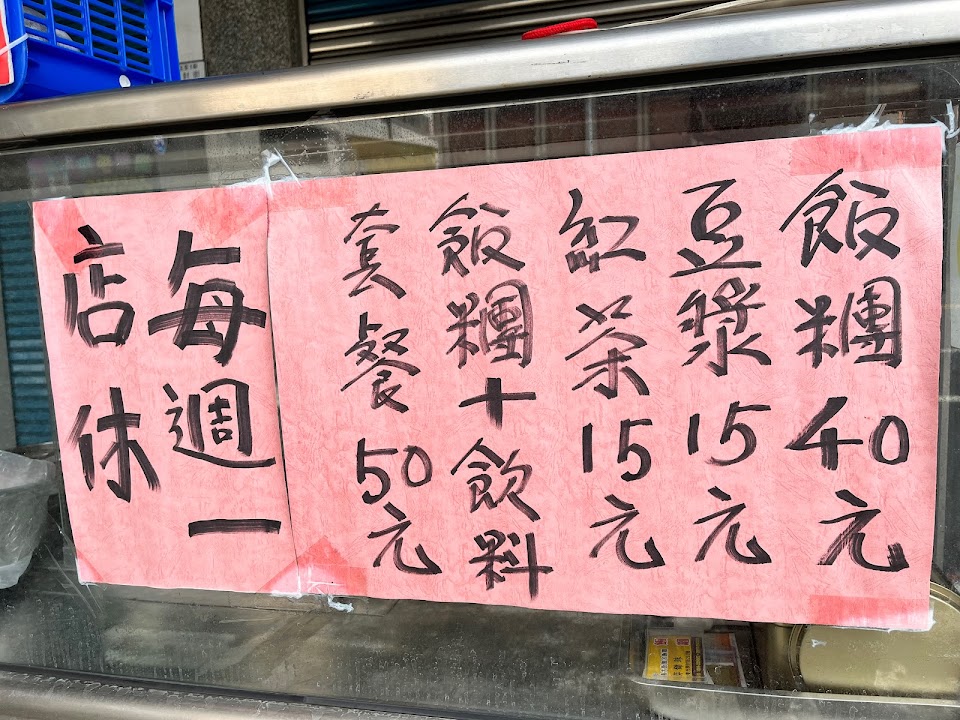 飯糰40元
豆漿15元
紅茶15元
飯糰+飲料
套餐50元
每週一
店休